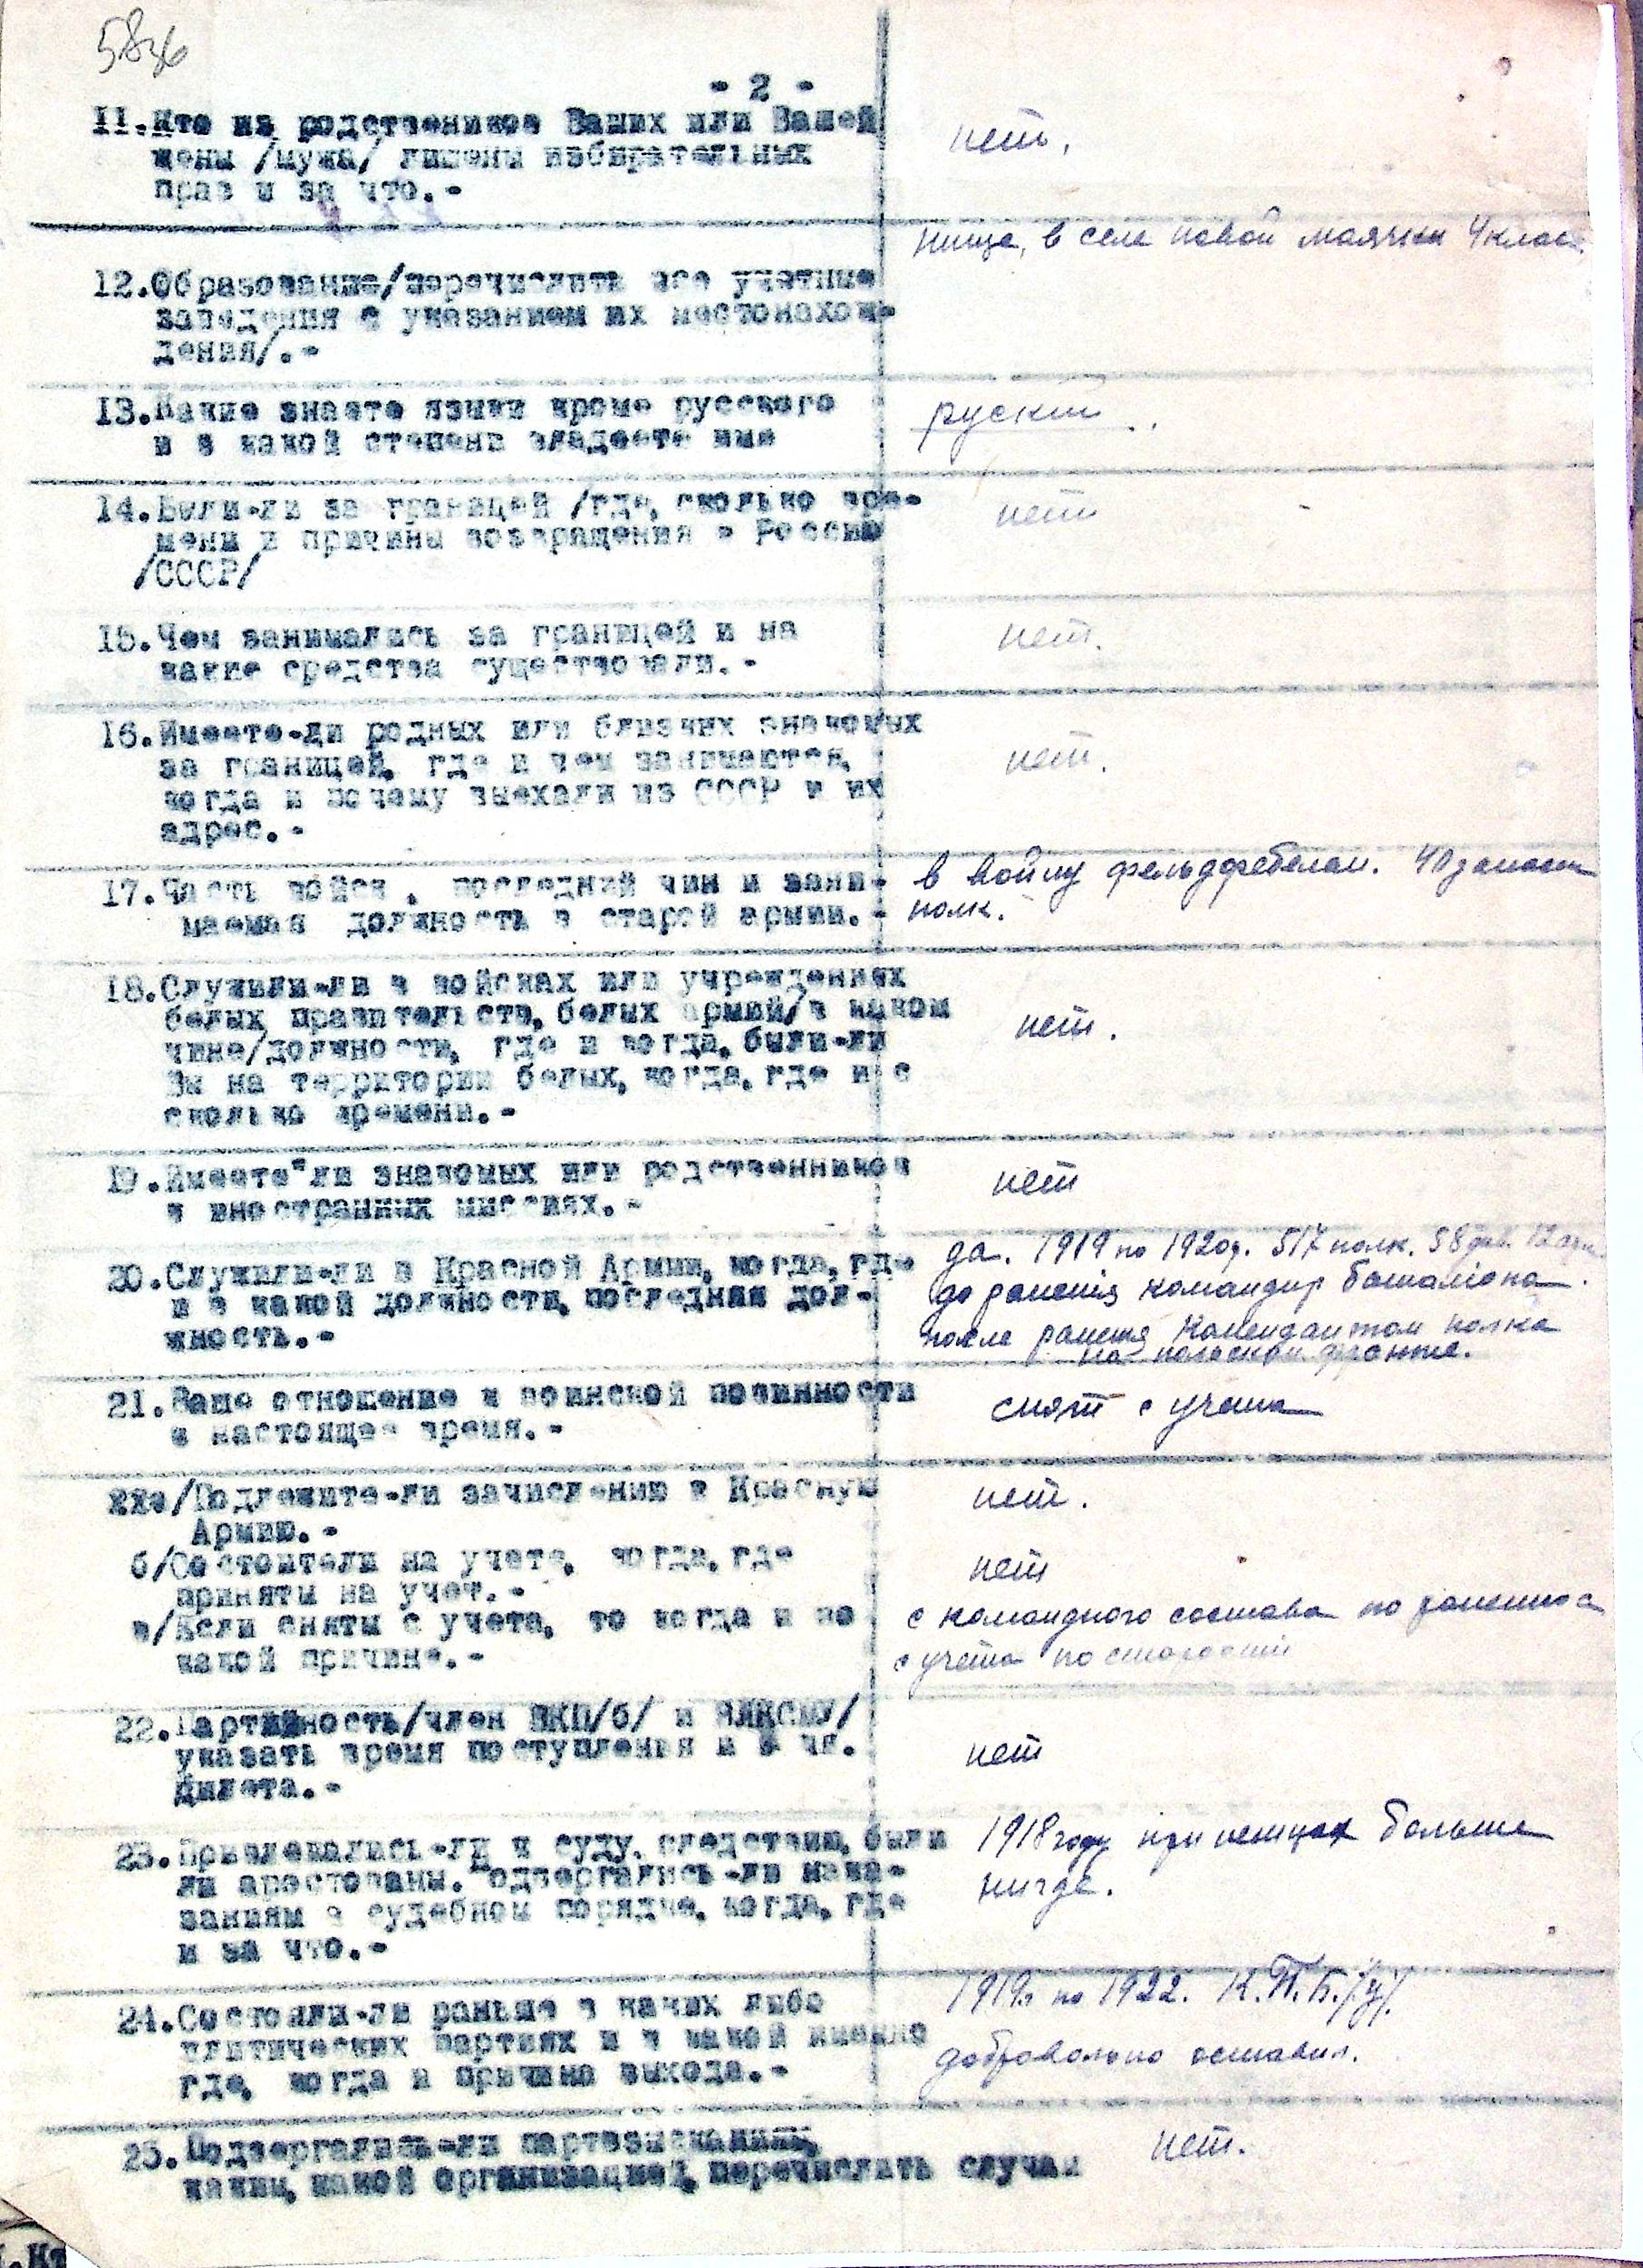 - 2 -
11. Кто из родственников Ваших или Вашей
жены /мужа/ лишены избирательных
прав и за что.-
нет.
12. Образование/перечислить все учебные
заведения с указанием их местонахож-
дения/.-
в селе новой маячки 4 клас.
13. Какие знаете языки кроме русского
и в какой степени владеете ими
руский
14. Были-ли за границей /где, сколько вре-
мени и причины возвращения в Россию
/СССР/
нет
15. Чем занимались за границей и на
какие средства существовали.-
нет.
16. Имеете-ли родных или близких знакомых
за границей, где и чем занимаются,
когда и почему выехали из СССР и их
адрес.-
нет.
17. Часть войск, последний чин и зани-
маемая должность в старой армии.-
в войну фельдфебелем. 40 запасн
полк.
18. Служили-ли в войсках или учреждениях
белых правительств, белых армий/в каком
чине/должности, где и когда, были-ли
Вы на территории белых, когда, где и с
сколько времени.-
нет.
19. Имеете-ли знакомых или родственников
в иностранных миссиях.-
нет
20. Служили-ли в Красной Армии, когда, где
и в какой должности, последняя дол-
жность.-
да. 1919 по 1920г. 517 полк. 58 див. 12 арм
до ранения командир баталіона.
после ранения Комендантом полка
на польском фронте.
21. Ваше отношение к воинской повинности
в настоящее время.-
снят с учета
а/Подлежите-ли зачислению в Красную
Армию.-
нет.
б/Состоители на учете, когда, где
приняты на учет.-
нет
в/Если сняты с учета, то когда и по
какой причине.-
с командного состава по раненнос
с учета по старости
22. Партийность/член ВКП/б/ и ЛКСМУ/
указать время поступления и № чл.
билета.-
нет
23. Привлекались-ли к суду, следствию, были
ли арестованы. одвергались-ли нака-
заниям в судебном порядке, когда, где
и за что.-
1918 году при немцах больше
нигде.
24. Состояли-ли раньше в каких либо
политических партиях и в какой именно
где, когда и причина выхода.-
1919г по 1922. К.П.Б./У/.
добровольно оставил.
25. Подвергались-ли партвзысканиям,
каким, какой организацией, перечислить случаи
нет.